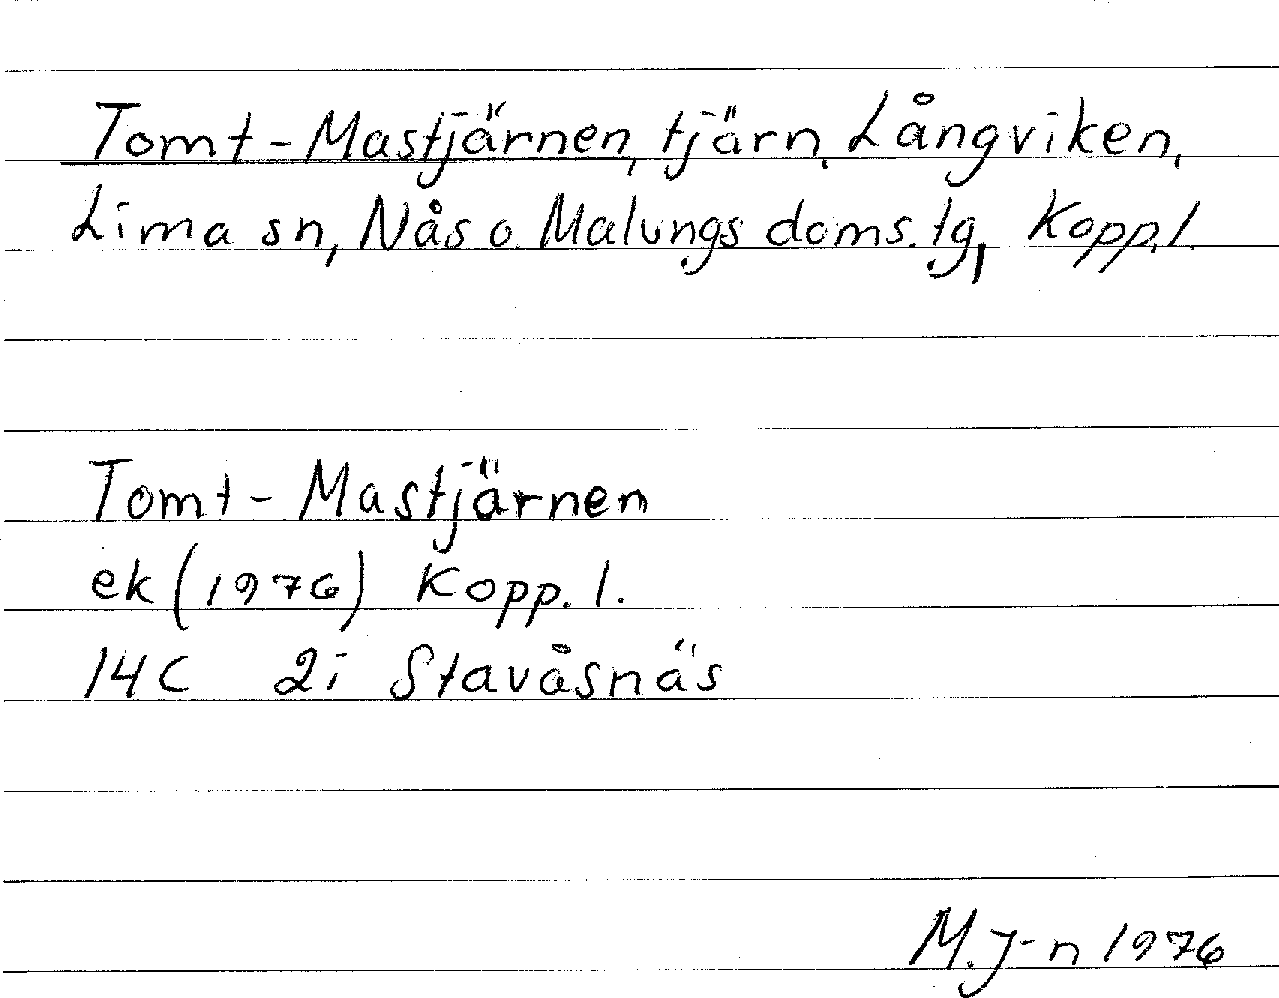 Tomt-Mastjärnen, tjärn, Långviken,
Lima sn, Nås o. Malungs doms.tg, Kopp.l.
Tomt-Mastjärnen
ek (1976) Kopp. l.
14C 2i Stavåsnäs
M.J-n 1976